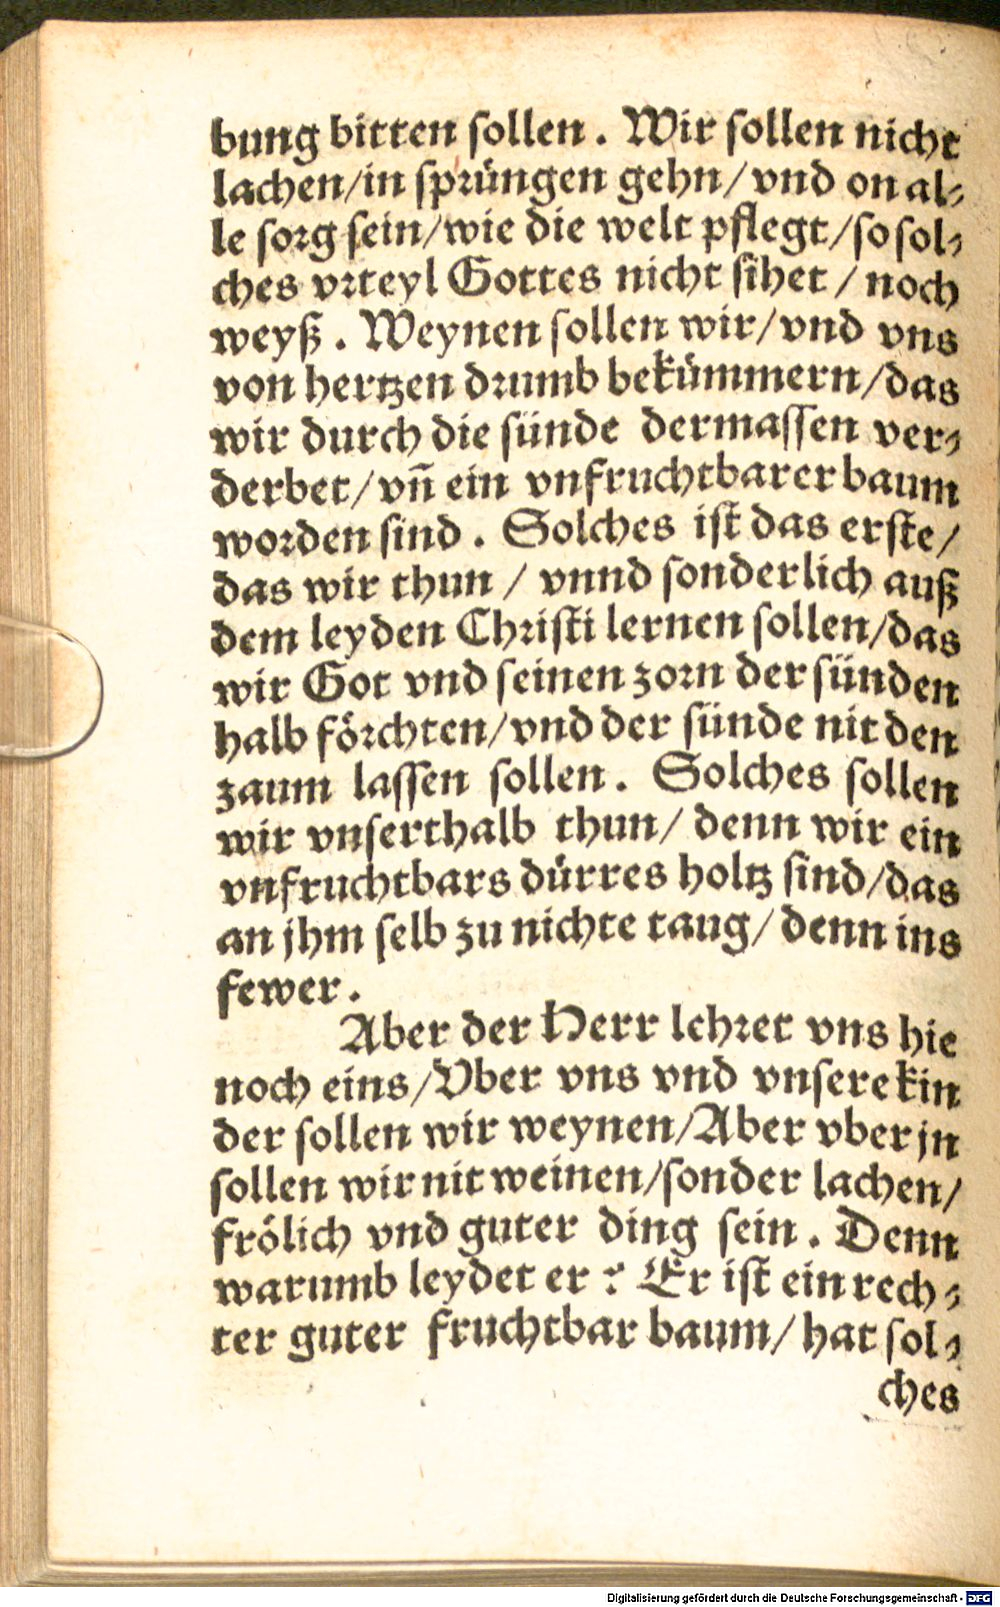 bung bitten sollen. Wir sollen nicht
lachen/in sprüngen gehn/vnd on al⸗
le sorg sein/wie die welt pflegt/so sol⸗
ches vrteyl Gottes nicht sihet/noch
weyß. Weynen sollen wir/vnd vns
von hertzen drumb bekümmern/das
wir durch die sünde dermassen ver⸗
derbet/vñ ein vnfruchtbarer baum
worden sind. Solches ist das erste/
das wir thun/vnnd sonderlich auß
dem leyden Christi lernen sollen/das
wir Got vnd seinen zorn der sünden
halb förchten/vnd der sünde nit den
zaum lassen sollen. Solches sollen
wir vnserthalb thun/denn wir ein
vnfruchtbars dürres holtz sind/das
an jhm selb zu nichte taug/denn ins
fewer.
Aber der Herr lehret vns hie
noch eins/Vber vns vnd vnsere kin
der sollen wir weynen/Aber vber jn
sollen wir nit weinen/sonder lachen/
frölich vnd guter ding sein. Denn
warumb leydet er? Er ist ein rech⸗
ter guter fruchtbar baum/hat sol⸗
ches
Digitalisierung gefördert durch die Deutsche Forschungsgemeinschaft - DFG